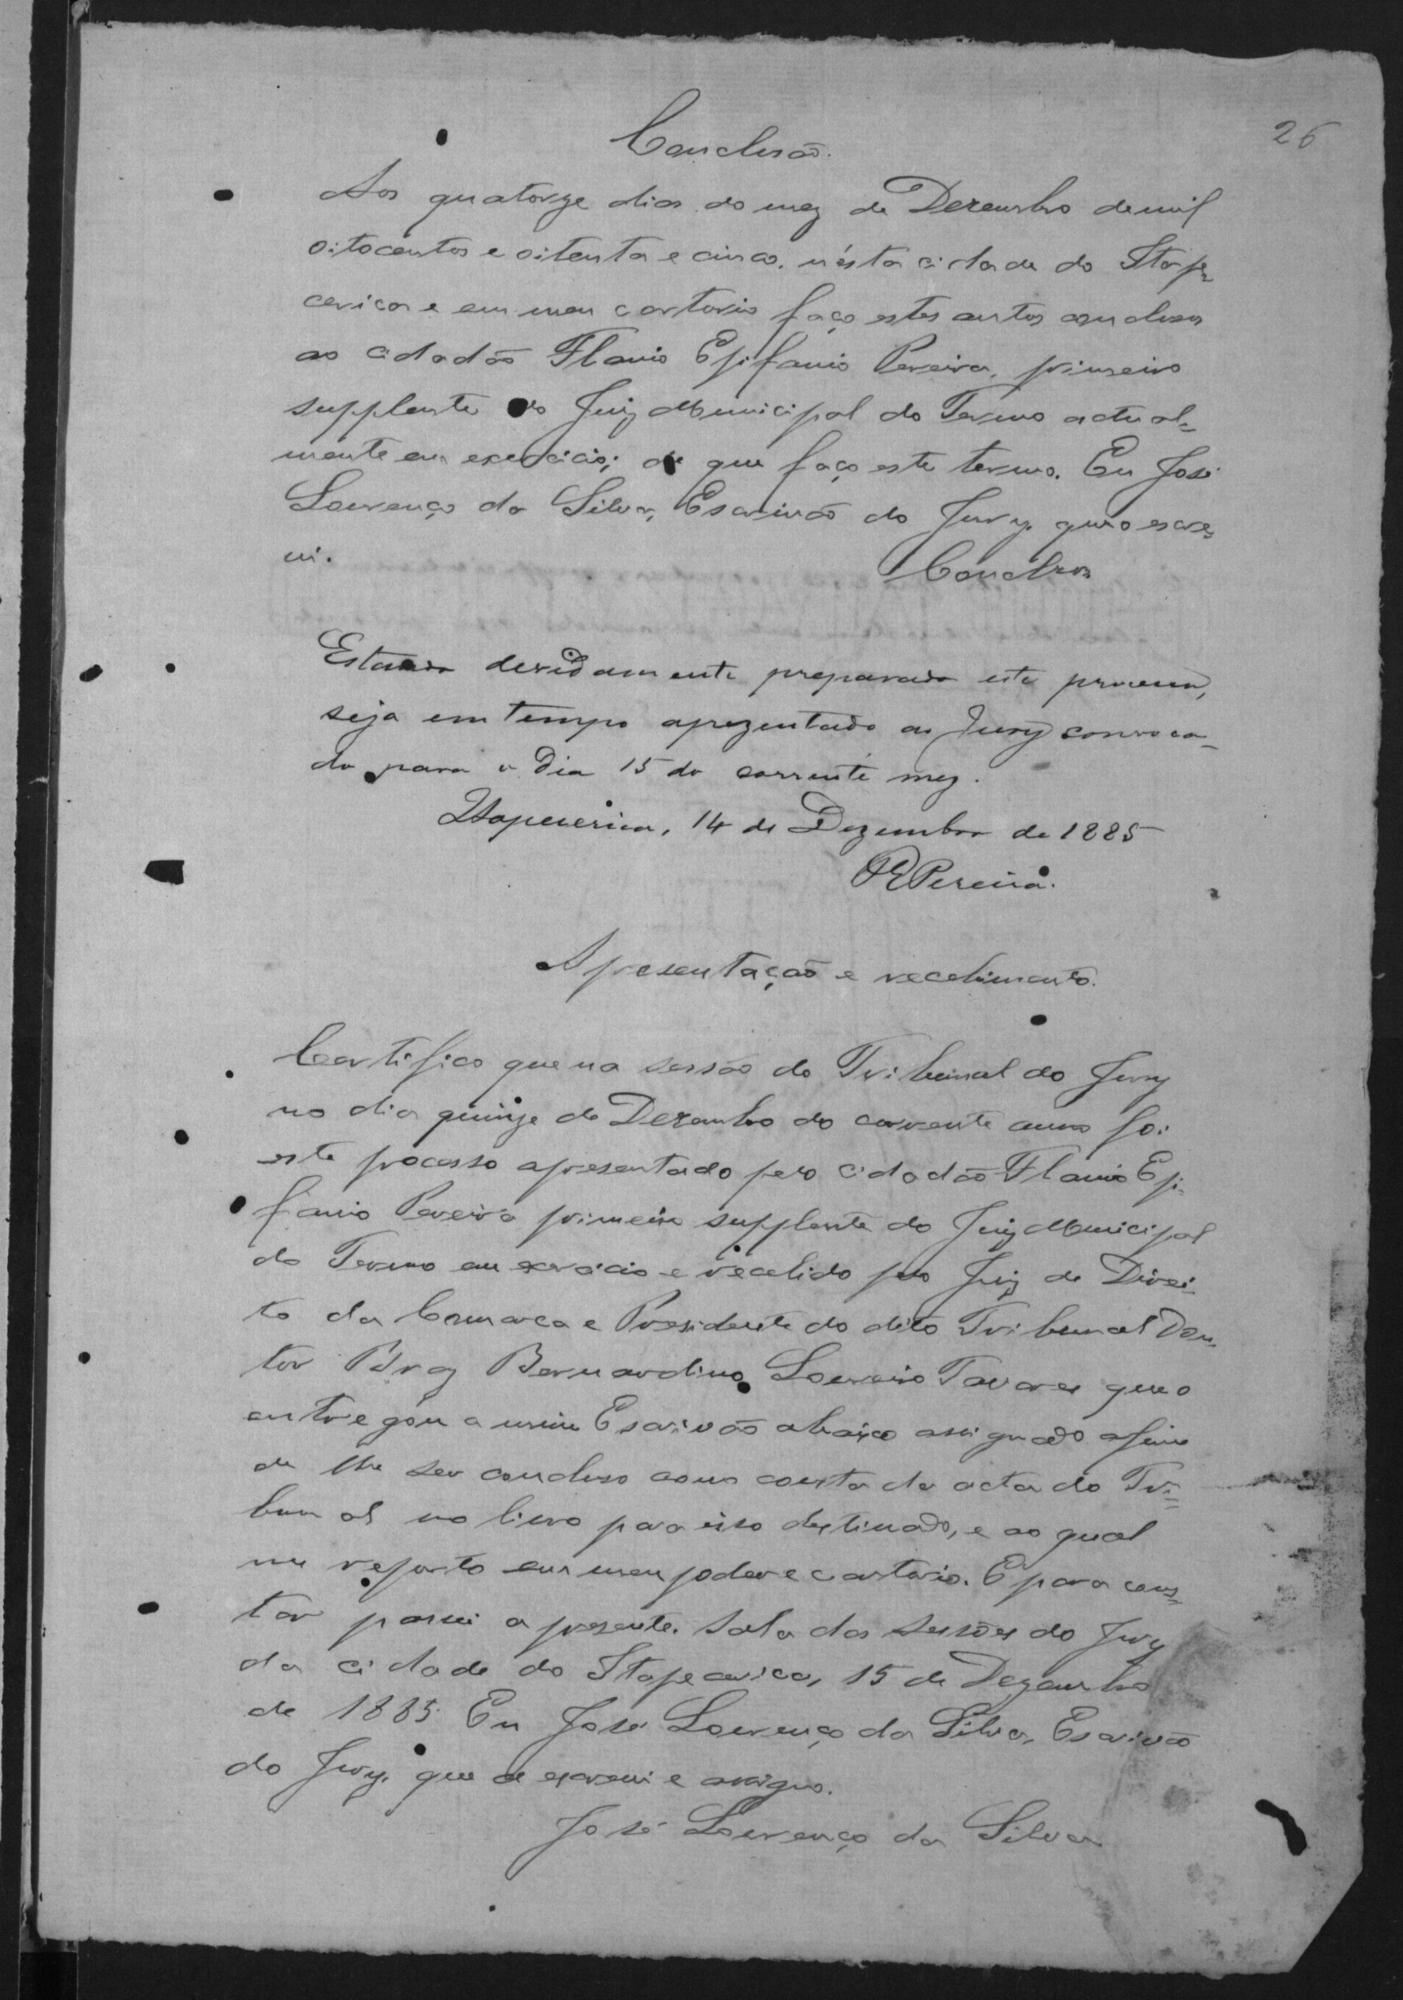 26
Conclusão.
Aos quatorze dias do mez de Dezembro de mil
oitocentos e oitenta e cinco, nésta cidade do Itape
cerica e em meu cartorio faço estes autos conclusos
ao cidadão Flavio Epifanio Pereira, primeiro
supplente do Juiz Municipal do Termo actual=
mente em exercicio; de que faço este termo. Eu José
Lourenço da Silva, Escrivão do Jury, que o escre
vi.
Conclusos
Estando devidamente preparado este processo,
seja em tempo aprezentado ao Jury convoca-
do para o dia 15 do corrente mez.
Itapecerica, 14 de Dezembro de 1885
Pereira.
Apresentação e recebimento.
Certifico que na sessão do Tribunal do Jury
no dia quinze de Dezembro do corrente anno foi
este processo apresentado pelo cidadão Flavio Epi-
fanio Pereira primeiro supplente do Juiz Municipal
do Termo em exercicio e recebido pelo Juiz de Direi-
to da Comarca e Presidente do dito Tribunal Dou
tor Braz Bernardino Loureiro Tavares que o
entregou a mim Escrivão abaixo assignado afim
de lhe ser concluso como consta da acta do Tri=
bunal no livro para isso destinado, e ao qual
me reporto em meu poder e cartorio. E para cons
tar passei a presente. Sala das sessões do Jury
da cidade do Itapecerica, 15 de Dezembro
de 1885. Eu José Lourenço da Silva, Escrivão
do Jury, que a escrevi e assigno.
José Lourenço da Silva